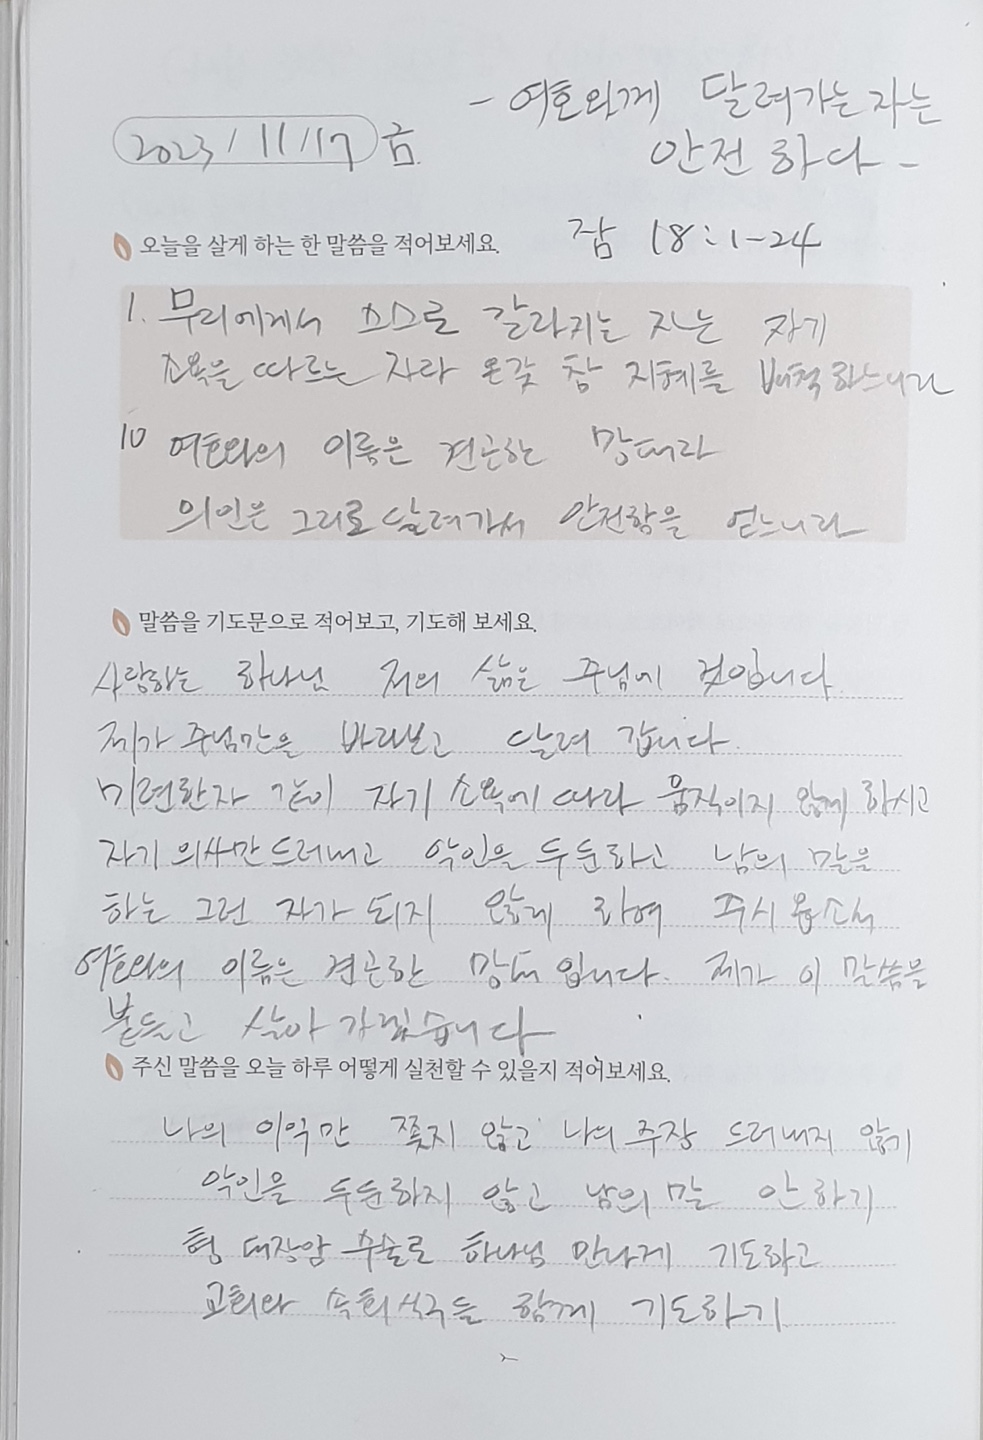 - 여호와께 달려가는 자는
안전하다 -
2023/11/17 금.
잠 18:1-24
오늘을 살게 하는 한 말씀을 적어보세요.
1. 무리에게서 스스로 갈라지는 자는 자기
소욕을 따르는 자라 온갖 참 지혜를 배척하느니라
10 여호와의 이름은 견고한 망대라
의인은 그리로 달려가서 안전함을 얻느니라
말씀을 기도문으로 적어보고, 기도해 보세요.
사랑하는 하나님 저의 삶은 주님에 것입니다.
제가 주님만은 바라보고 달려 갑니다.
미련한자 같이 자기 소욕에 따라 움직이지 않게 하시고
자기 의사만 드러내고 악인을 두둔하고 남의 말을
하는 그런 자가 되지 않게 하여 주시옵소서
여호와의 이름은 견고한 망대 입니다. 제가 이 말씀을
붙들고 살아 가겠습니다
주신 말씀을 오늘 하루 어떻게 실천할 수 있을지 적어보세요.
나의 이익만 쫓지 않고 나의 주장 드러내지 않기
악인을 두둔하지 않고 남의 말 안하기
형 대장암 수술로 하나님 만나게 기도하고
교회와 속회식구들 함께 기도하기